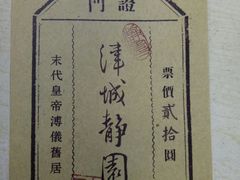 門證
票價貳拾圓
津城静園
末代皇帝溥儀舊居